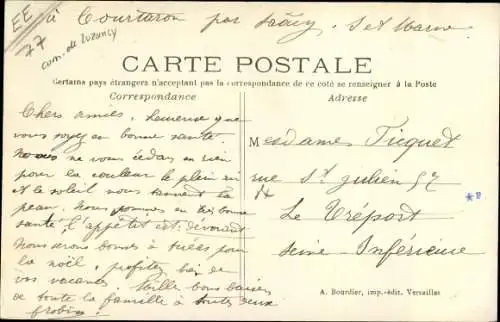 EE
77
com. de Luzancy
à Courtaron par Sââcy, S et Marne
CARTE POSTALE
Certains pays étrangers n'acceptant pas la correspondance de ce coté se renseigner à la Poste
Correspondance
Adresse
Chers amies, heureuse que
vous soyez en bonne santé.
Nous ne vous cédons en rien
pour la couleur le plein air
et le soleil nous tannent la
peau. Nous sommes en très bonne
santé, l'appétit est dévorant
Nous serons bonnes à tuées pour
la noël, profitez bien de
vos vacances. Mille bons baisers
de toute la famille à toutes deux
Mesdames Ticquet
rue St Julien 57
Le Tréport
Seine-Inférieure
A. Bourdier, imp.-édit. Versailles